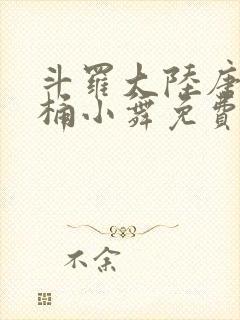 斗羅大陸唐
桶小舞免費
不余